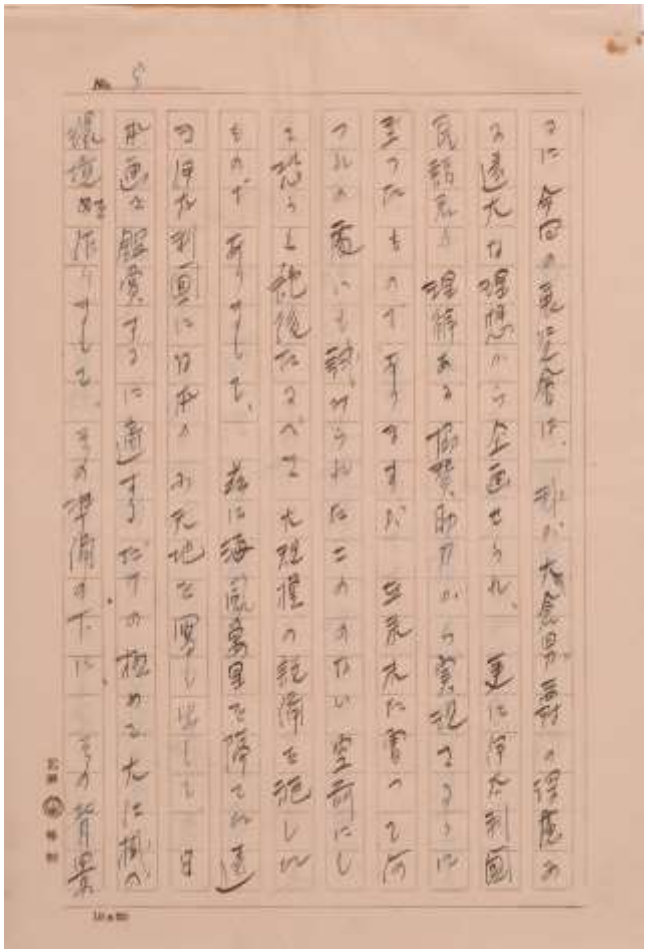 No. 5
るに 今回の展覧会は、 我が大倉男爵の深慮あ
る遠大な理想から企画せられ、 更に伊太利国
民諸君の 理解ある 協賛助力から実現さるゝに
至つたものでありますが 在来未だ曾つて何
つれの処にも試みられたことのない空前にし
て恐らく絶後たるべき 大規模の
ものでありまして、 茲に海風萬里を隔てた遠
き伊太利国に日本の小天地を写し出して 日
本画を鑑賞するに適するだけの極めて大仕掛の
環境を作りまして、 その準備の下に、 その背景